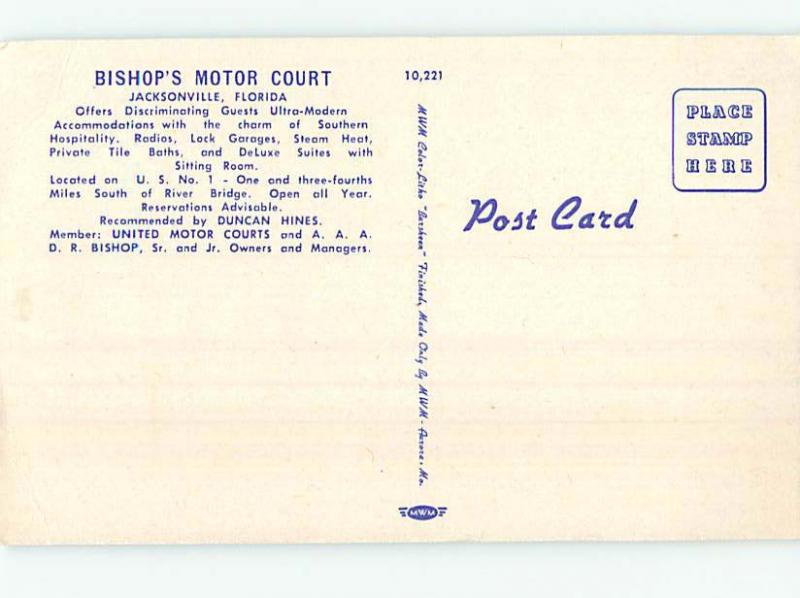 BISHOP'S MOTOR COURT
JACKSONVILLE, FLORIDA
Offers Discriminating Guests Ultra-Modern
Accommodations with the charm of Southern
Hospitality. Radios, Lock Garages, Steam Heat,
Private Tile Baths, and DeLuxe Suites with
Sitting Room.
Located on U. S. No. 1 - One and three-fourths
Miles South of River Bridge. Open all Year.
Reservations Advisable.
Recommended by DUNCAN HINES.
Member: UNITED MOTOR COURTS and A. A. A.
D. R. BISHOP, Sr. and Jr. Owners and Managers.
10,221
MWM Color-Litho "Lusheen" Finished, Made Only By MWM - Aurora, Mo.
MWM
Post Card
PLACE
STAMP
HERE